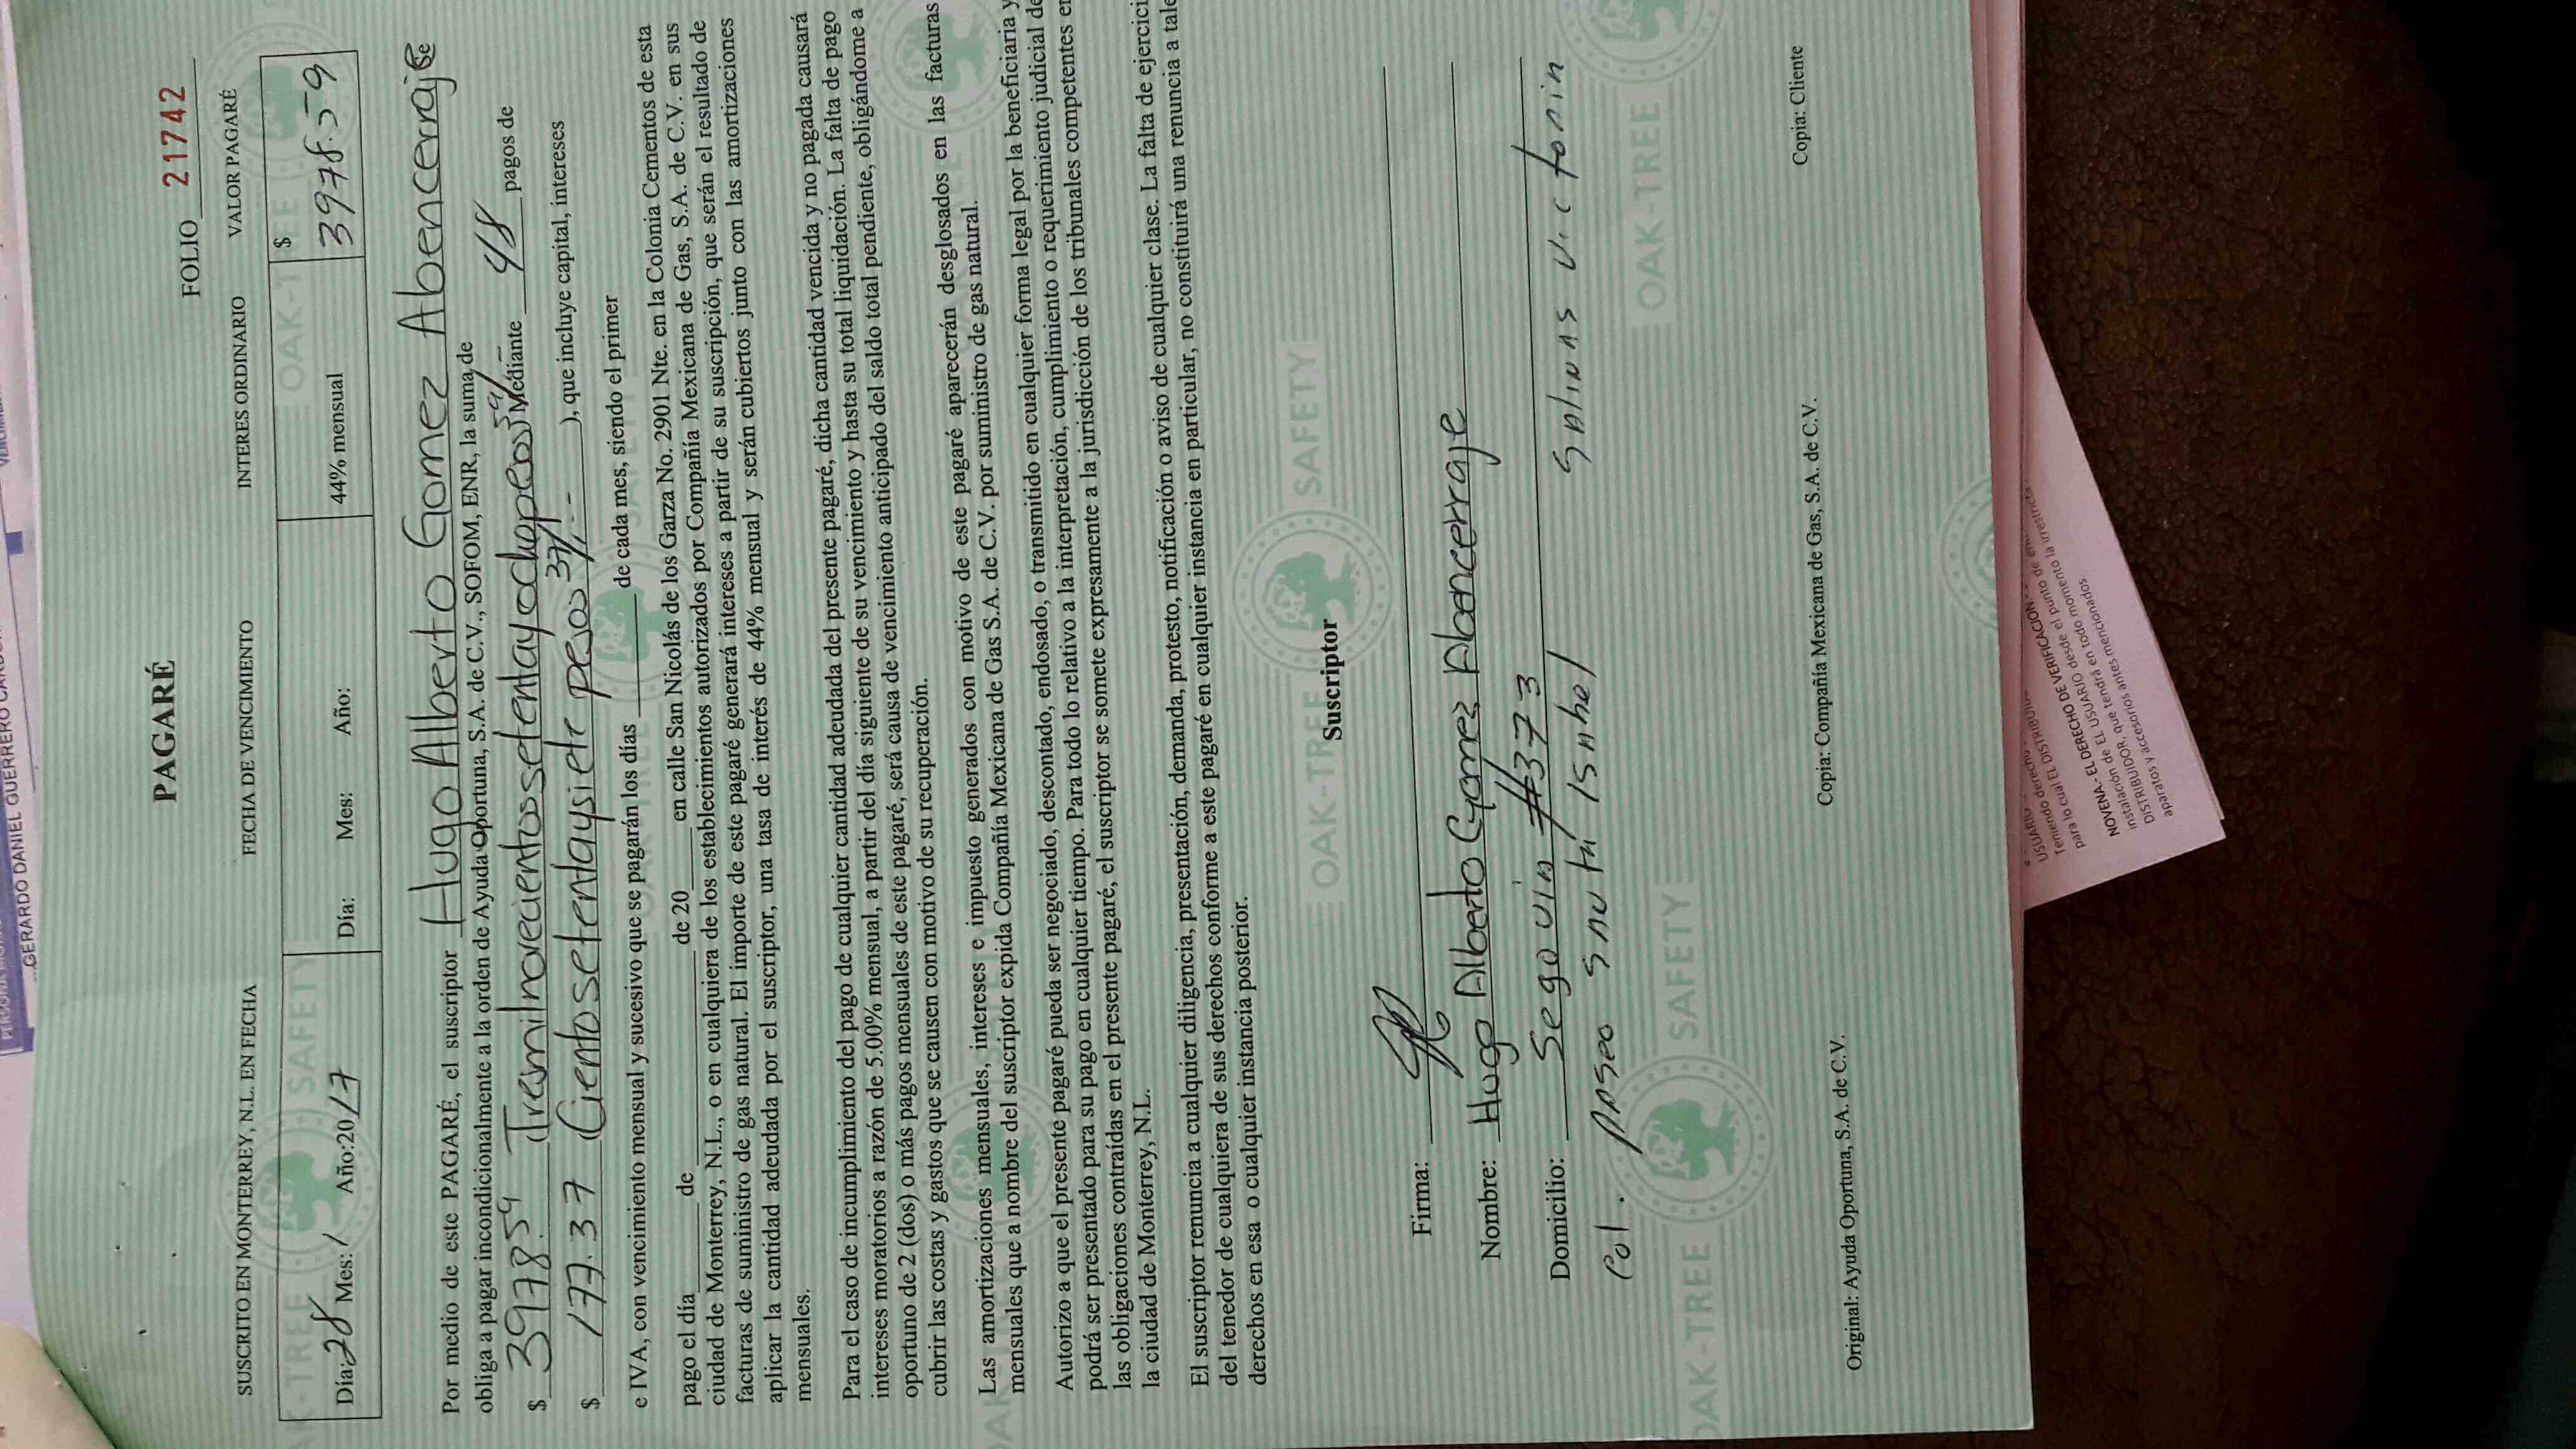 GERARDO DANIEL GUERRERO
PAGARÉ
FOLIO 21742
SUSCRITO EN MONTERREY, N.L. EN FECHA FECHA DE VENCIMIENTO INTERES ORDINARIO VALOR PAGARÉ
Día: 28 Mes: 1 Año:2017 Día: Mes: Año: 44% mensual $ 3978.59
Por medio de este PAGARÉ, el suscriptor Hugo Alberto Gomez Abencerraje se
obliga a pagar incondicionalmente a la orden de Ayuda Oportuna, S.A. de C.V., SOFOM, ENR, la suma de
$ 3978.59 (Tresmilnovecientossetentayochopesos 59/ Mediante 48 pagos de
$ 177.37 (Cientosetentaysiete pesos 37/.-- ), que incluye capital, intereses
e IVA, con vencimiento mensual y sucesivo que se pagarán los días de cada mes, siendo el primer
pago el día de de 20 en calle San Nicolás de los Garza No. 2901 Nte. en la Colonia Cementos de esta
ciudad de Monterrey, N.L., o en cualquiera de los establecimientos autorizados por Compañía Mexicana de Gas, S.A. de C.V. en sus
facturas de suministro de gas natural. El importe de este pagaré generará intereses a partir de su suscripción, que serán el resultado de
aplicar la cantidad adeudada por el suscriptor, una tasa de interés de 44% mensual y serán cubiertos junto con las amortizaciones
mensuales.
Para el caso de incumplimiento del pago de cualquier cantidad adeudada del presente pagaré, dicha cantidad vencida y no pagada causará
intereses moratorios a razón de 5.00% mensual, a partir del día siguiente de su vencimiento y hasta su total liquidación. La falta de pago
oportuno de 2 (dos) o más pagos mensuales de este pagaré, será causa de vencimiento anticipado del saldo total pendiente, obligándome a
cubrir las costas y gastos que se causen con motivo de su recuperación.
Las amortizaciones mensuales, intereses e impuesto generados con motivo de este pagaré aparecerán desglosados en las facturas
mensuales que a nombre del suscriptor expida Compañía Mexicana de Gas S.A. de C.V. por suministro de gas natural.
Autorizo a que el presente pagaré pueda ser negociado, descontado, endosado, o transmitido en cualquier forma legal por la beneficiaria y
podrá ser presentado para su pago en cualquier tiempo. Para todo lo relativo a la interpretación, cumplimiento o requerimiento judicial de
las obligaciones contraídas en el presente pagaré, el suscriptor se somete expresamente a la jurisdicción de los tribunales competentes en
la ciudad de Monterrey, N.L.
El suscriptor renuncia a cualquier diligencia, presentación, demanda, protesto, notificación o aviso de cualquier clase. La falta de ejercici
del tenedor de cualquiera de sus derechos conforme a este pagaré en cualquier instancia en particular, no constituirá una renuncia a tale
derechos en esa o cualquier instancia posterior.
Suscriptor
Firma:
Nombre: Hugo Alberto Gomez Abencerraje
Domicilio: Segovin #373
Col. Paseo Snutn Isnbel Salinas Victorin
Original: Ayuda Oportuna, S.A. de C.V. Copia: Compañía Mexicana de Gas, S.A. de C.V. Copia: Cliente
OAK-TREE SAFETY
USUARIO derecho
Teniendo derecho EL DISTRIBUI
para lo cual EL DERECHO DE VERIFICACION.
NOVENA.- EL DERECHO desde el punto de
instalación de EL USUARIO desde el momento la irrestricta
DISTRIBUIDOR, que tendrá en todo momento
aparatos y accesorios antes mencionados